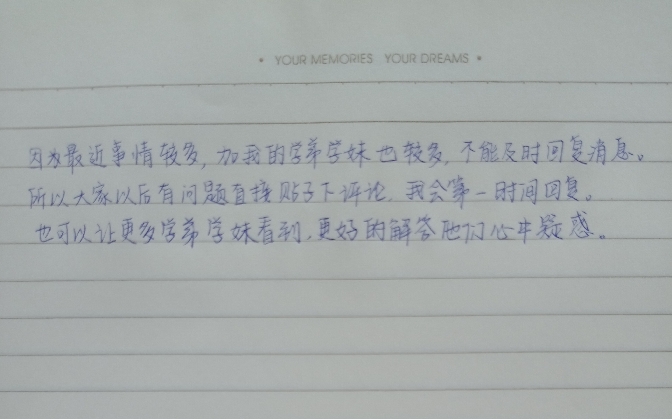 • YOUR MEMORIES YOUR DREAMS •
因为最近事情较多，加我的学弟学妹也较多，不能及时回复消息。
所以大家以后有问题直接贴子下评论，我会第一时间回复。
也可以让更多学弟学妹看到，更好的解答他们心中疑惑。